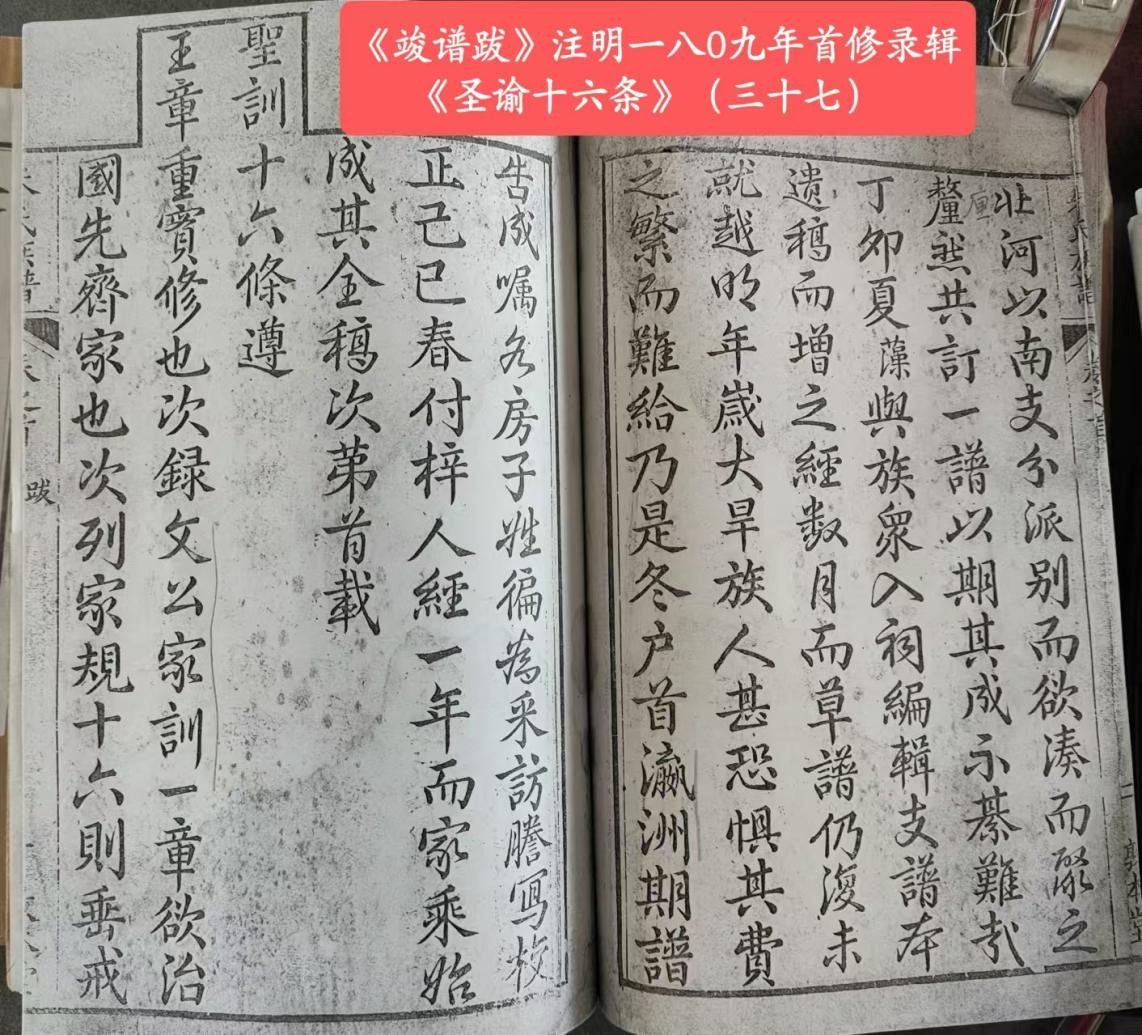 《竣谱跋》注明一八0九年首修录辑
《圣谕十六条》（三十七）
壯河以南支分派别而欲湊而聚之
釐然共訂一譜以期其成示綦難哉
丁卯夏藻與族眾入祠編輯支譜本
遺稿而增之經数月而草譜仍復未
就越明年歲大旱族人甚恐惧其費
之繁而難給乃是冬户首瀛洲期譜
告成嘱各房子姓徧為采訪謄写校
正己巳春付梓人經一年而家乘始
成其全稿次苐首載
聖訓十六條遵
王章重賓修也次録文公家訓一章欲治
國先齊家也次列家規十六則垂戒
跋